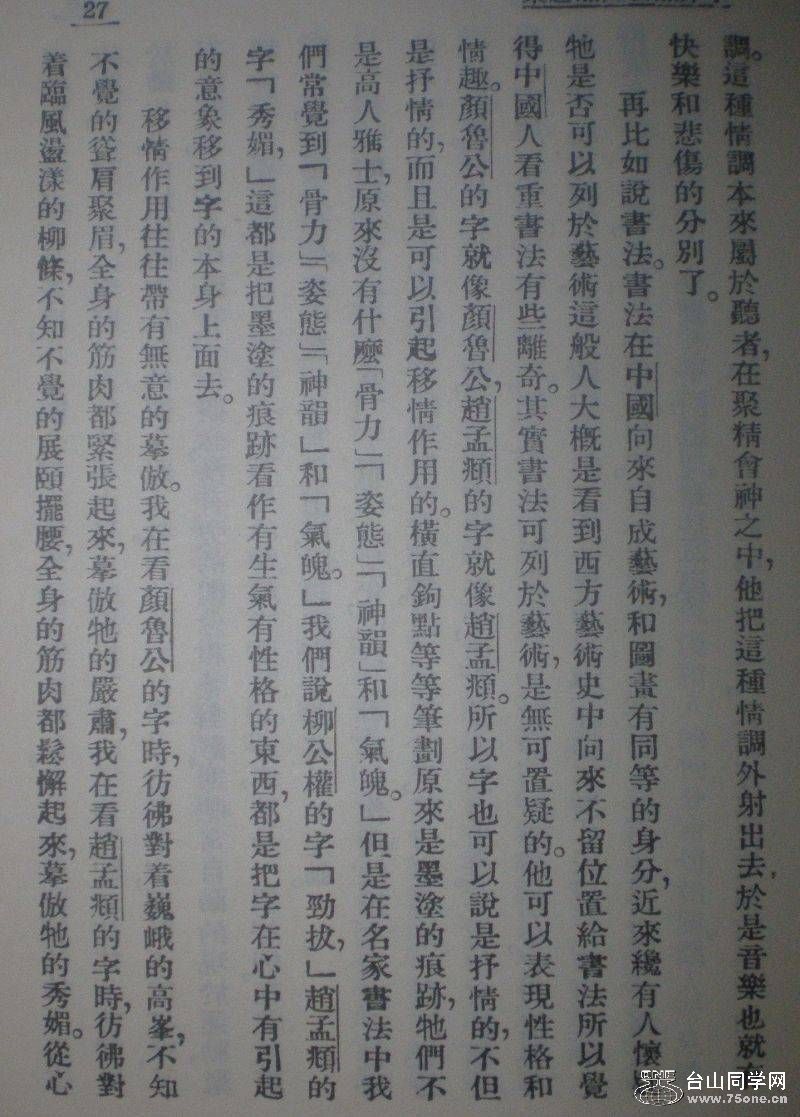 27
調。這種情調本來屬於聽者,在聚精會神之中,他把這種情調外射出去,於是音樂也就
快樂和悲傷的分別了。
再比如說書法。書法在中國向來自成藝術,和圖畫有同等的身分,近來纔有人懷
牠是否可以列於藝術,這般人大概是看到西方藝術史中向來不留位置給書法,所以覺
得中國人看重書法有些離奇。其實書法可列於藝術,是無可置疑的。他可以表現性格和
情趣。顏魯公的字就像顏魯公,趙孟頫的字就像趙孟頫。所以字也可以說是抒情的,不但
是抒情的,而且是可以引起移情作用的。橫直鉤點等等筆劃原來是墨塗的痕跡,牠們不
是高人雅士,原來沒有什麼「骨力」「姿態」「神韻」和「氣魄。」但是在名家書法中我
們常覺到「骨力」「姿態」「神韻」和「氣魄。」我們說柳公權的字「勁拔,」趙孟頫的
字「秀媚,」這都是把墨塗的痕跡看作有生氣有性格的東西,都是把字在心中有引起
的意象移到字的本身上面去。
移情作用往往帶有無意的摹倣。我在看顏魯公的字時,彷彿對着巍峨的高峯,不知
不覺的聳肩聚眉,全身的筋肉都緊張起來,摹倣牠的嚴肅,我在看趙孟頫的字時,彷彿對
着臨風盪漾的柳條,不知不覺的展頤擺腰,全身的筋肉都鬆懈起來,摹倣牠的秀媚。從心
台山同学网
www.75one.cn